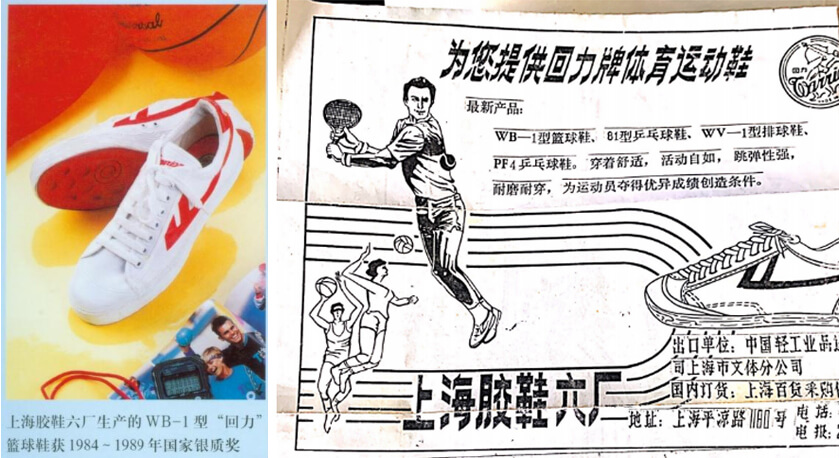 上海胶鞋六厂生产的WB-1型“回力”
篮球鞋获1984～1989年国家银质奖
为您提供回力牌体育运动鞋
回力
最新产品：
WB—1型篮球鞋、81型乒乓球鞋、WV—1型排球鞋、
PF4乒乓球鞋。穿着舒适，活动自如，跳弹性强，
耐磨耐穿，为运动员夺得优异成绩创造条件。
出口单位：中国轻工业品
司上海市文体分公司
国内订货：上海百货采购
上海胶鞋六厂
地址：上海平凉路1160号
电话：
电报：